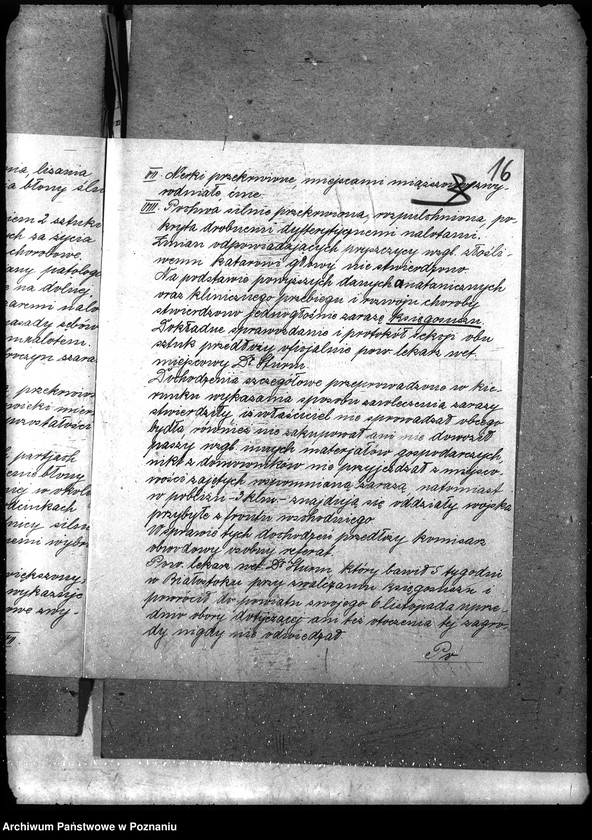 16
onia, lisania
ia błony ślu
iem 2 sztuki
ch za życia
chorobowe.
any patolog
e na dolnej
zaremi nalo
nalotem.
przekrwio
wicki mier
pozostałości
partjach
czne błony
icy w około
nicy silnie
iemi wybro
większony,
wykazuje
owe zwy-
VII.
VII. Nerki przekrwione, miejscami miąższowo zwy-
rodniałe, ćme.
VIII. Pochwa silnie przekrwiona, rozpulchniona, po-
kryta drobnemi dyfterytycznemi nalotami.
Zmian odpowiadających pryszczycy wzgl. złośli-
wemu katarowi głowy nie stwierdzono.
Na podstawie powyższych danych anatomicznych
oraz klinicznego przebiegu i rozwoju choroby
stwierdzono jednogłośnie zarazę księgosusz.
Dokładne sprawozdanie i protokół sekcji obu
sztuk przedłoży oficjalnie pow. lekarz wet.
miejscowy Dr. Sturm.
Dochodzenia szczegółowe przeprowadzone w kie-
runku wykazania sposobu zawleczenia zarazy
stwierdziły iż właściciel nie sprowadzał obcego
bydła również nie zakupował ani nie dowoził
paszy wzgl. innych materjałów gospodarczych,
nikt z domowników nie przyjeżdżał z miejsco-
wości zajętych wspomnianą zarazą, natomiast
w pobliżu - 3 klm. - znajdują się oddziały wojska
przybyłe z frontu wschodniego.
W sprawie tych dochodzeń przedłoży komisarz
obwodowy osobny referat.
Pow. lekarz wet. Dr. Sturm, który bawił 5 tygodni
w Białymstoku przy zwalczaniu księgosuszu i
powrócił do powiatu swojego 6 listopada uprze-
dnio obory dotyczącej ani też otoczenia tej zagro-
dy nigdy nie odwiedzał.
Po
Archiwum Państwowe w Poznaniu